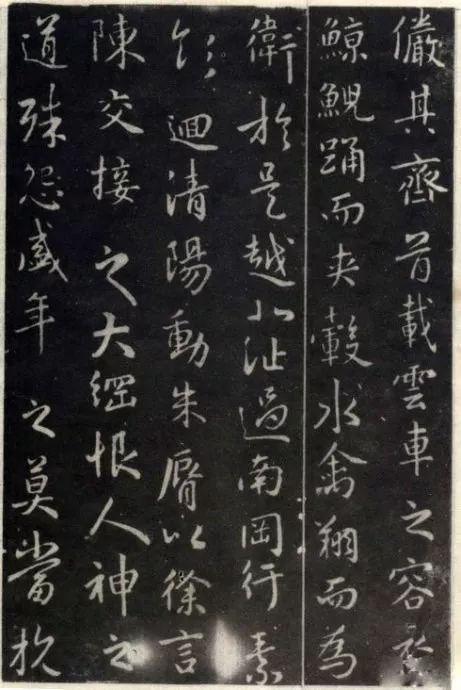 儼其齊首載雲車之容裔
鯨鯢踊而夾轂水禽翔而為
衛於是越北沚過南岡紆素
領迴清陽動朱脣以徐言
陳交接之大綱恨人神之
道殊怨盛年之莫當抗